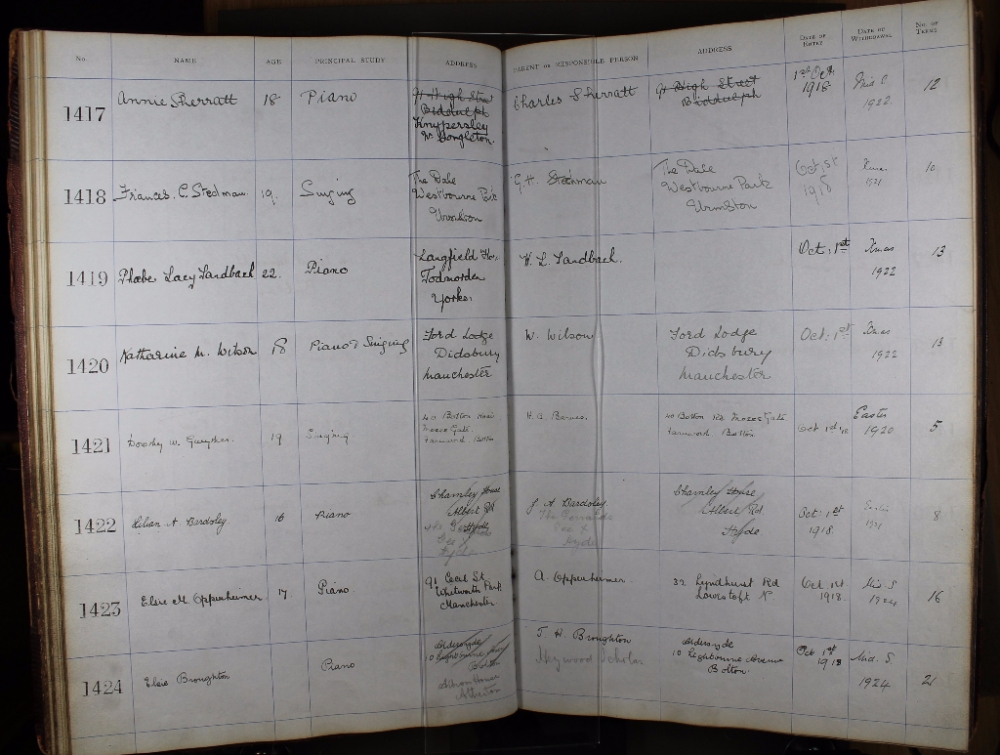 No. NAME AGE PRINCIPAL STUDY ADDRESS PARENT OR RESPONSIBLE PERSON ADDRESS DATE OF ENTRY DATE OF WITHDRAWAL NO. OF TERMS
1417 Annie Sherratt 18 Piano
91 High Street
Biddulph
Knypersley
Nr. Congleton.
Charles Sherratt
91 High Street
Biddulph
1st Oct
1918
Mid
1922
12
1418 Frances. C. Stedman. 19. Singing
The Dale
Westbourne Park
Urmston
G. H. Stedman
The Dale
Westbourne Park
Urmston
Oct. 1st
1918
Xmas
1921
10
1419 Phoebe Lacy Landbach 22. Piano
Langfield Ho.,
Todmorden
Yorks.
H. L. Landbach.
Oct. 1st
Xmas
1922
13
1420 Katharine M. Wilson 18 Piano & Singing
Ford Lodge
Didsbury
Manchester
W. Wilson
Ford Lodge
Didsbury
Manchester
Oct. 1st
Xmas
1922
13
1421 Dorothy W. 19 Singing
40 Bolton Road
Moses Gate
Farnworth. Bolton
H. B.
40 Bolton Rd Moses Gate
Farnworth Bolton.
Oct 1st
Easter
1920
5
1422 Lilian A Bardsley 16 Piano
Charnley House
Albert Rd
Hyde
J A Bardsley
Hyde
Charnley House
Albert Rd
Hyde
Oct. 1st
1918
1921
8
1423 Elsie M. Oppenheimer 17 Piano
91 Cecil St
Whitworth Park
Manchester
A. Oppenheimer.
32 Lyndhurst Rd
Lowestoft N.
Oct 1st
1918.
Mid S
1924
16
1424 Elsie Broughton Piano
10 Lightbourne Avenue
Bolton
Atherton
T H Broughton
Heywood Scholar
10 Lightbourne Avenue
Bolton.
Oct 1st
1918
Mid. S
1924
21